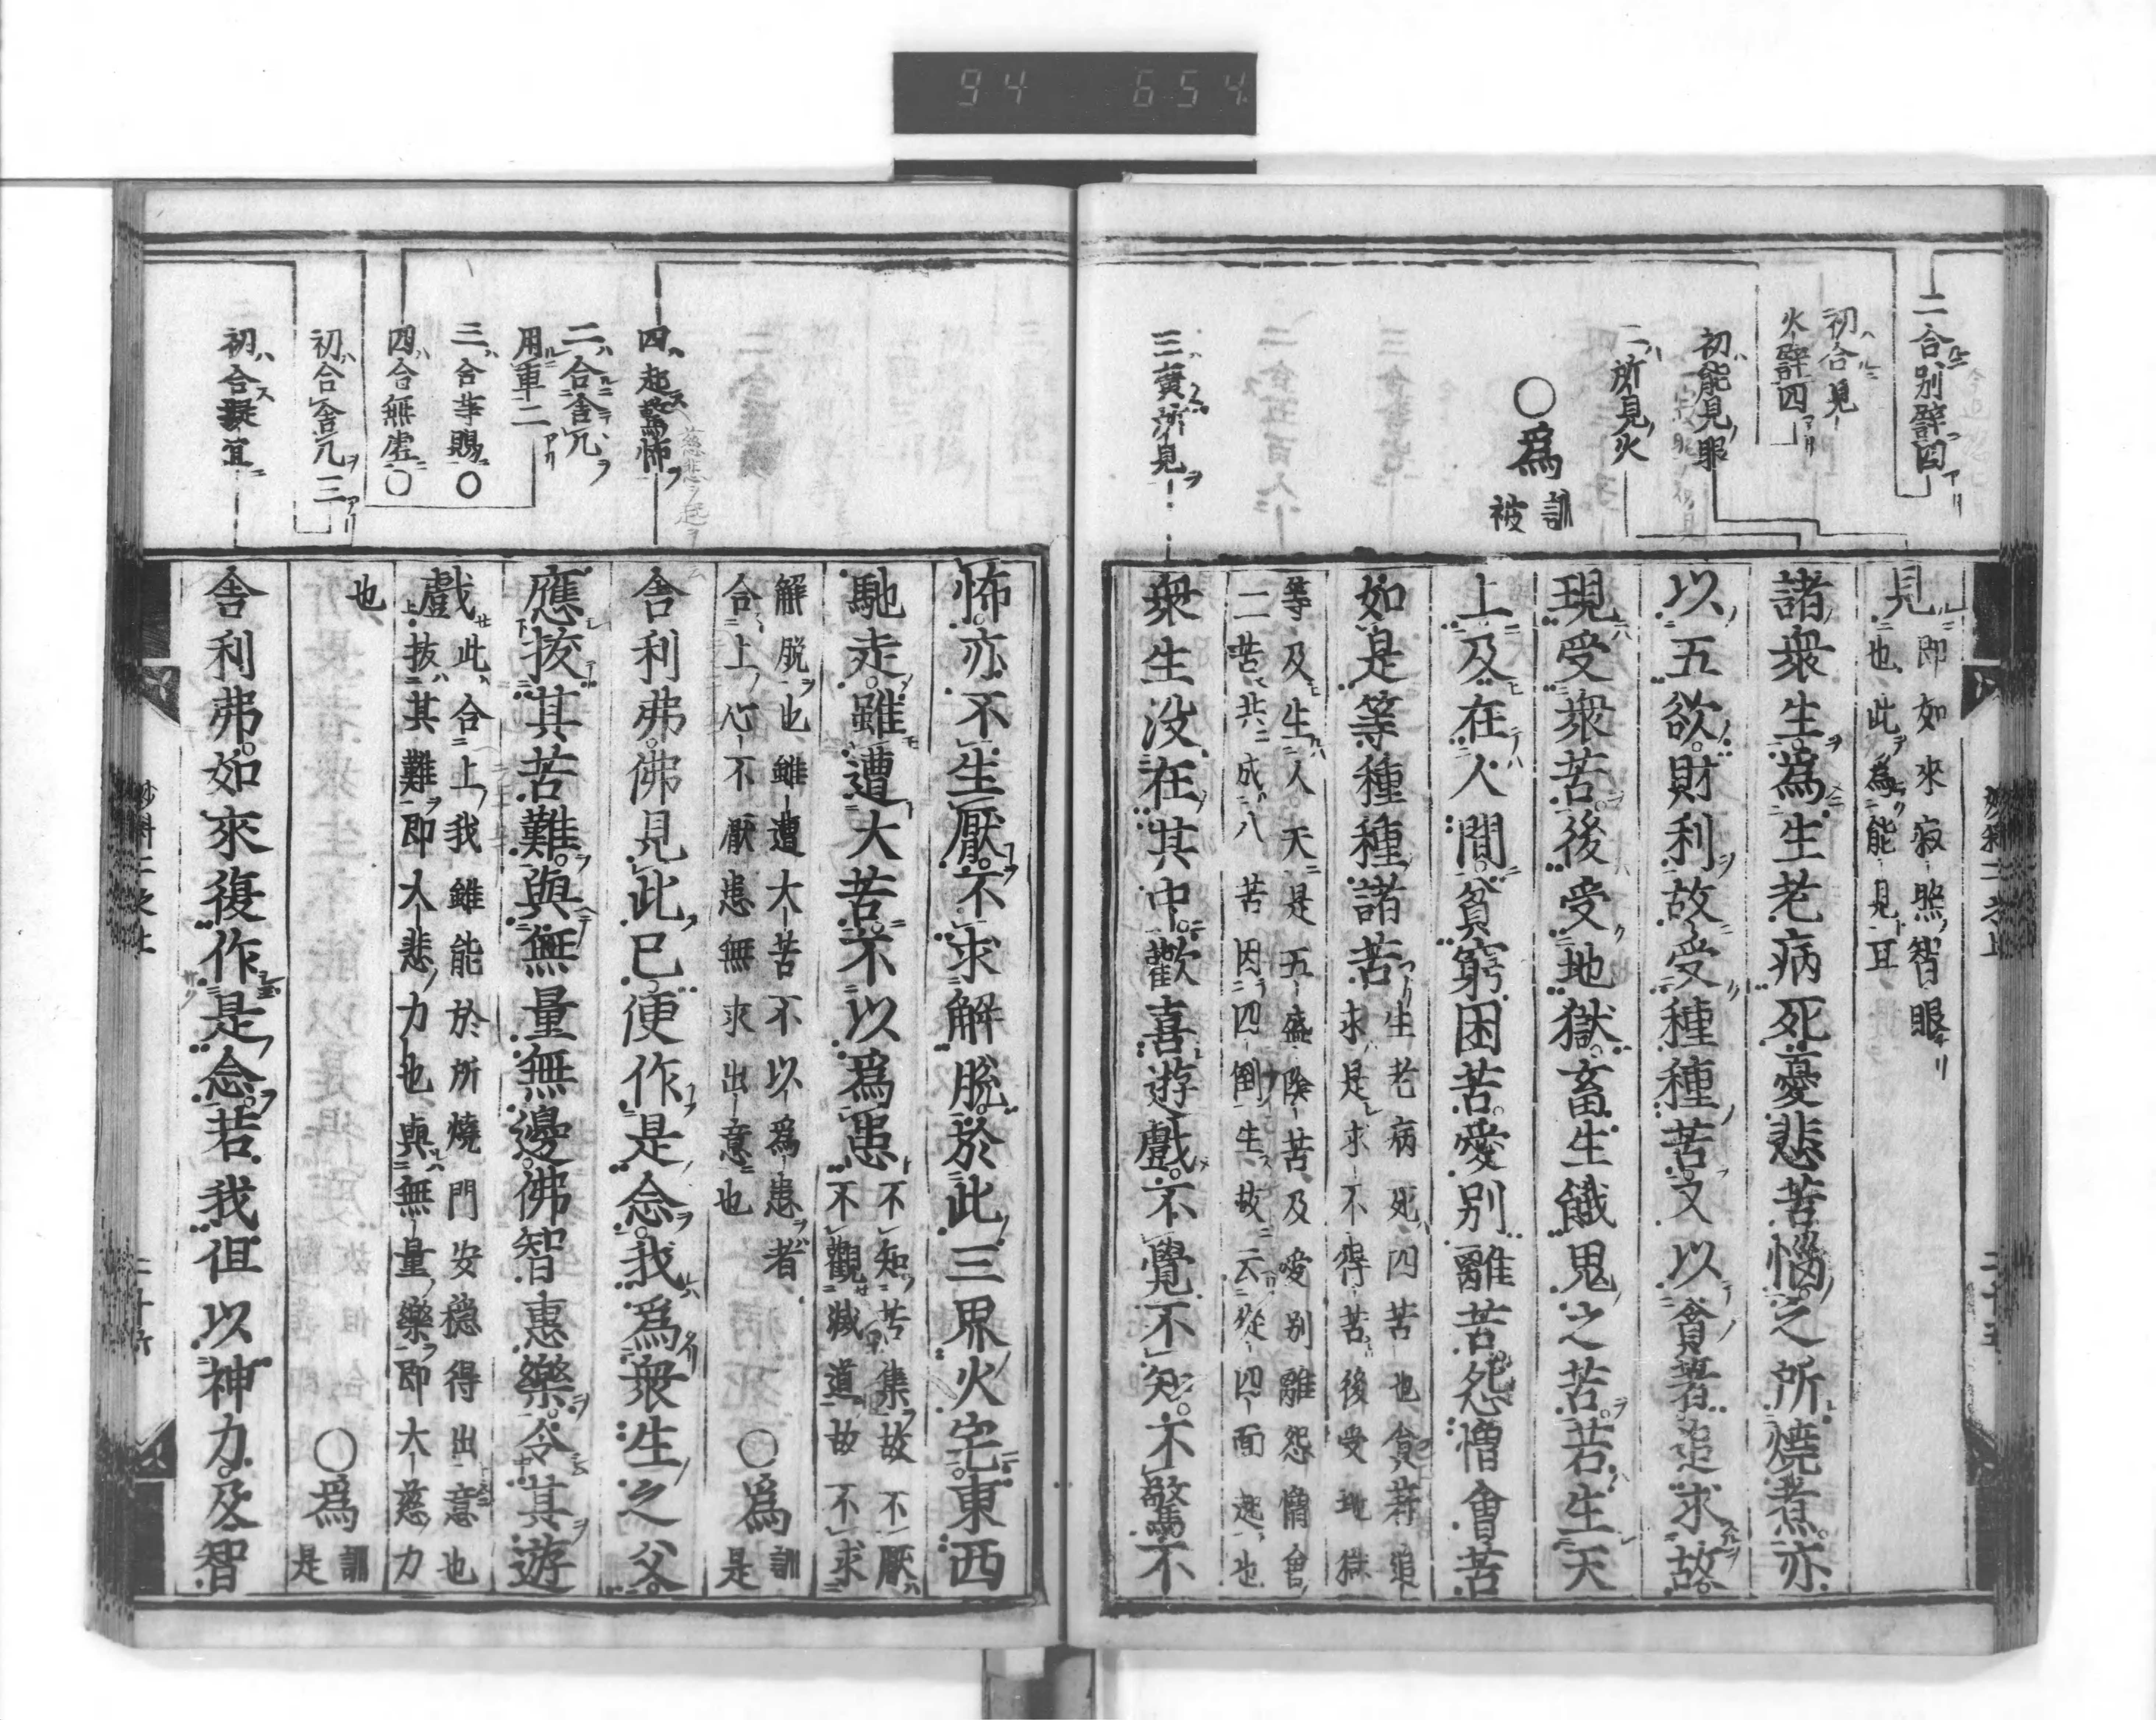 94 654
二合別譬四
初合見
火譬四
初能見眼
二所見火
○爲
訓
被
三實所見
見
即如來寂照智眼
也此爲能見耳
諸衆生爲生老病死憂悲苦惱之所燒煮亦
以五欲財利故受種種苦又以貪著追求故
現受衆苦後受地獄畜生餓鬼之苦若生天
上及在人間貧窮困苦愛別離苦怨憎會苦
如是等種種諸苦
生老病死四苦也貪著追
求是求不得苦後受地獄
等及生人天是五盛陰苦及愛別離怨憎會
二苦共成八苦因四倒生故云從四面起也
衆生没在其中歡喜遊戲不覺不知不驚不
妙科二之上
二十五
四起驚怖
二合舍几
用車二
三合等賜○
四合無虚○
初合舍几三
初合擬宜
怖亦不生厭不求解脱於此三界火宅東西
馳走雖遭大苦不以爲患
不知苦集故不厭
不觀滅道故不求
解脱也雖遭大苦不以爲患者
合上心不厭患無求出意也
○爲
訓
是
舍利弗佛見此已便作是念我爲衆生之父
應拔其苦難與無量無邊佛智惠樂令其遊
戲
此合上我雖能於所燒門安穏得出意也
拔其難即大悲力也與無量樂即大慈力
也
○爲
訓
是
舍利弗如來復作是念若我但以神力及智
妙科二之上
二十六